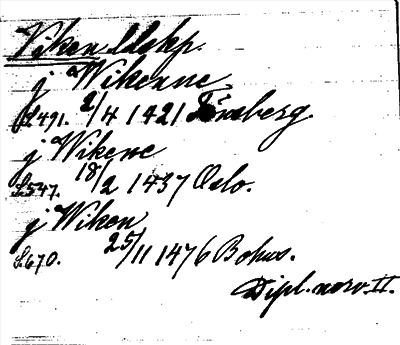 Viken ldskp.
j Wikenne
S.491. 2/4 1421 Tönsberg.
j Wikene
S.547. 18/2 1437 Oslo.
j Wiken
S.670. 25/11 1476 Bohus.
Dipl. norv. II.